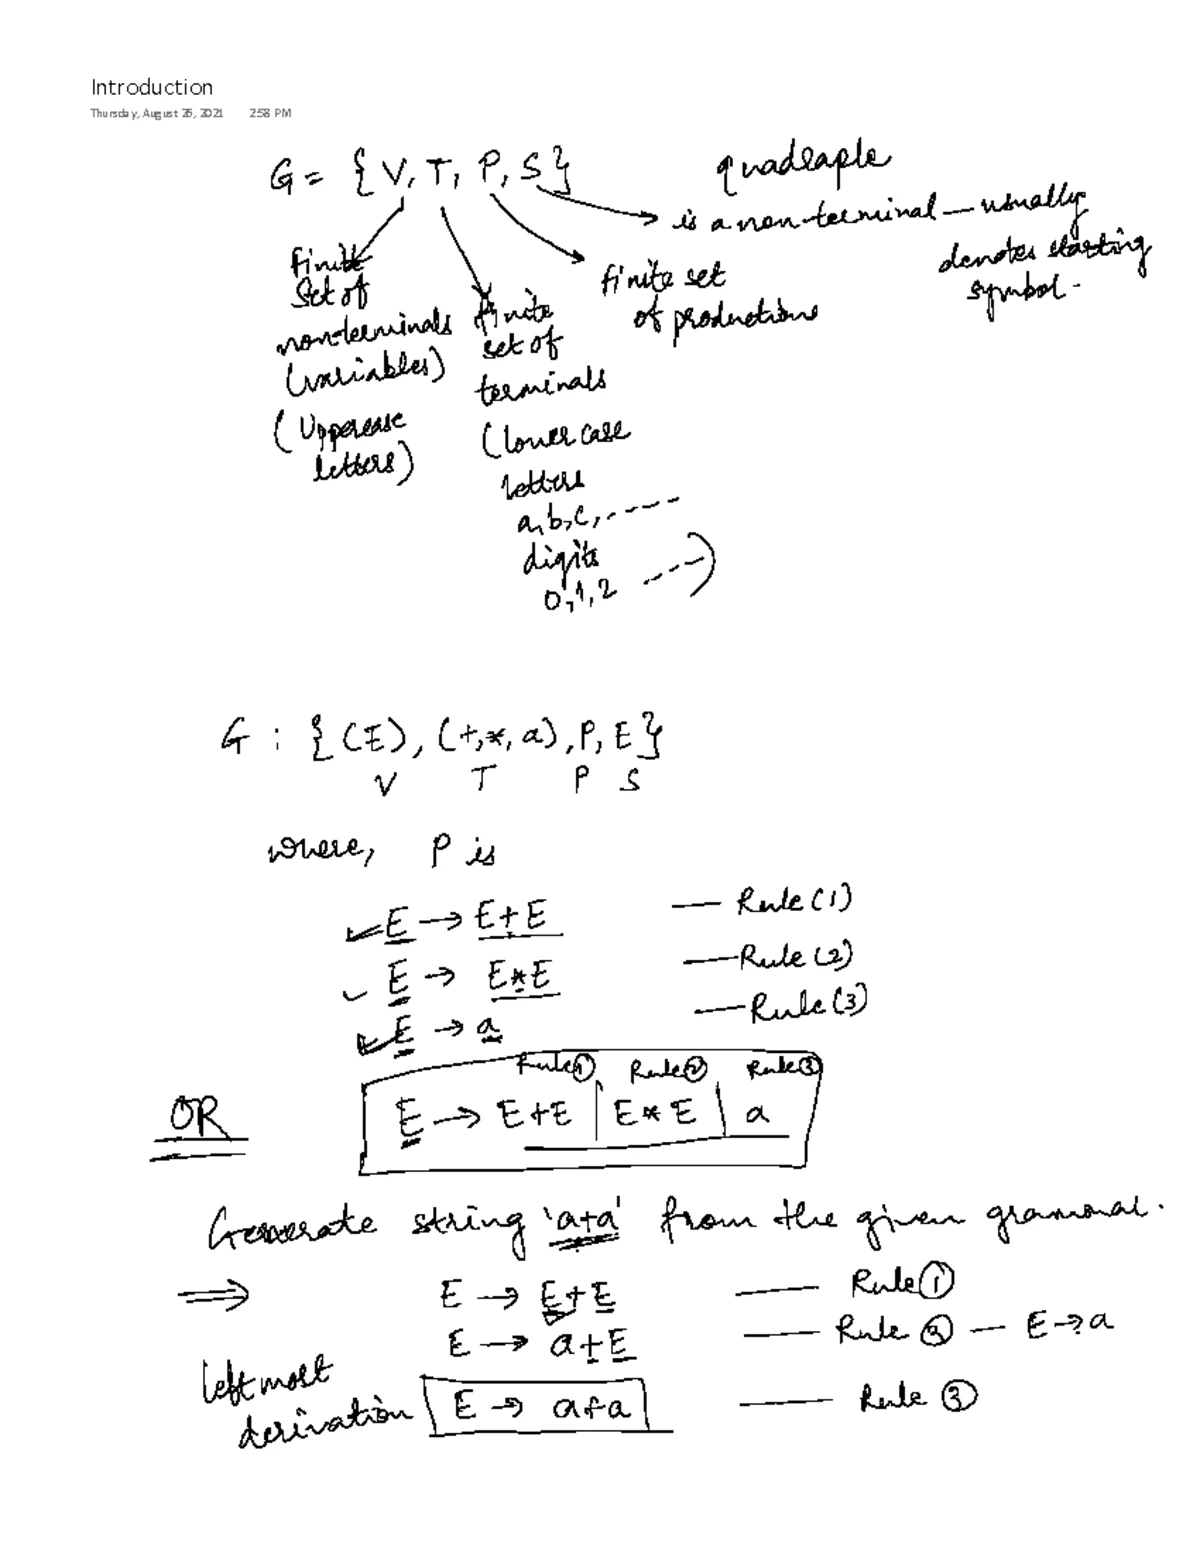 Introduction
Thursday, August 26, 2021 2:58 PM
G = {V, T, P, S}
quadraple
is a non-terminal — usually
denotes starting
symbol.
finite
set of
non-terminals
(variables)
(Uppercase
letters)
finite
set of
terminals
(lower case
letters
a, b, c, ------
digits
0, 1, 2 ----)
finite set
of productions
G : {(E), (+, *, a), P, E}
V T P S
where, P is
E → E+E — Rule (1)
E → E*E — Rule (2)
E → a — Rule (3)
Rule ① Rule ② Rule ③
OR E → E+E | E * E | a
Generate string 'a+a' from the given grammar.
⇒ E → E+E — Rule ①
E → a+E — Rule ③ — E → a
leftmost
derivation E → a+a — Rule ③